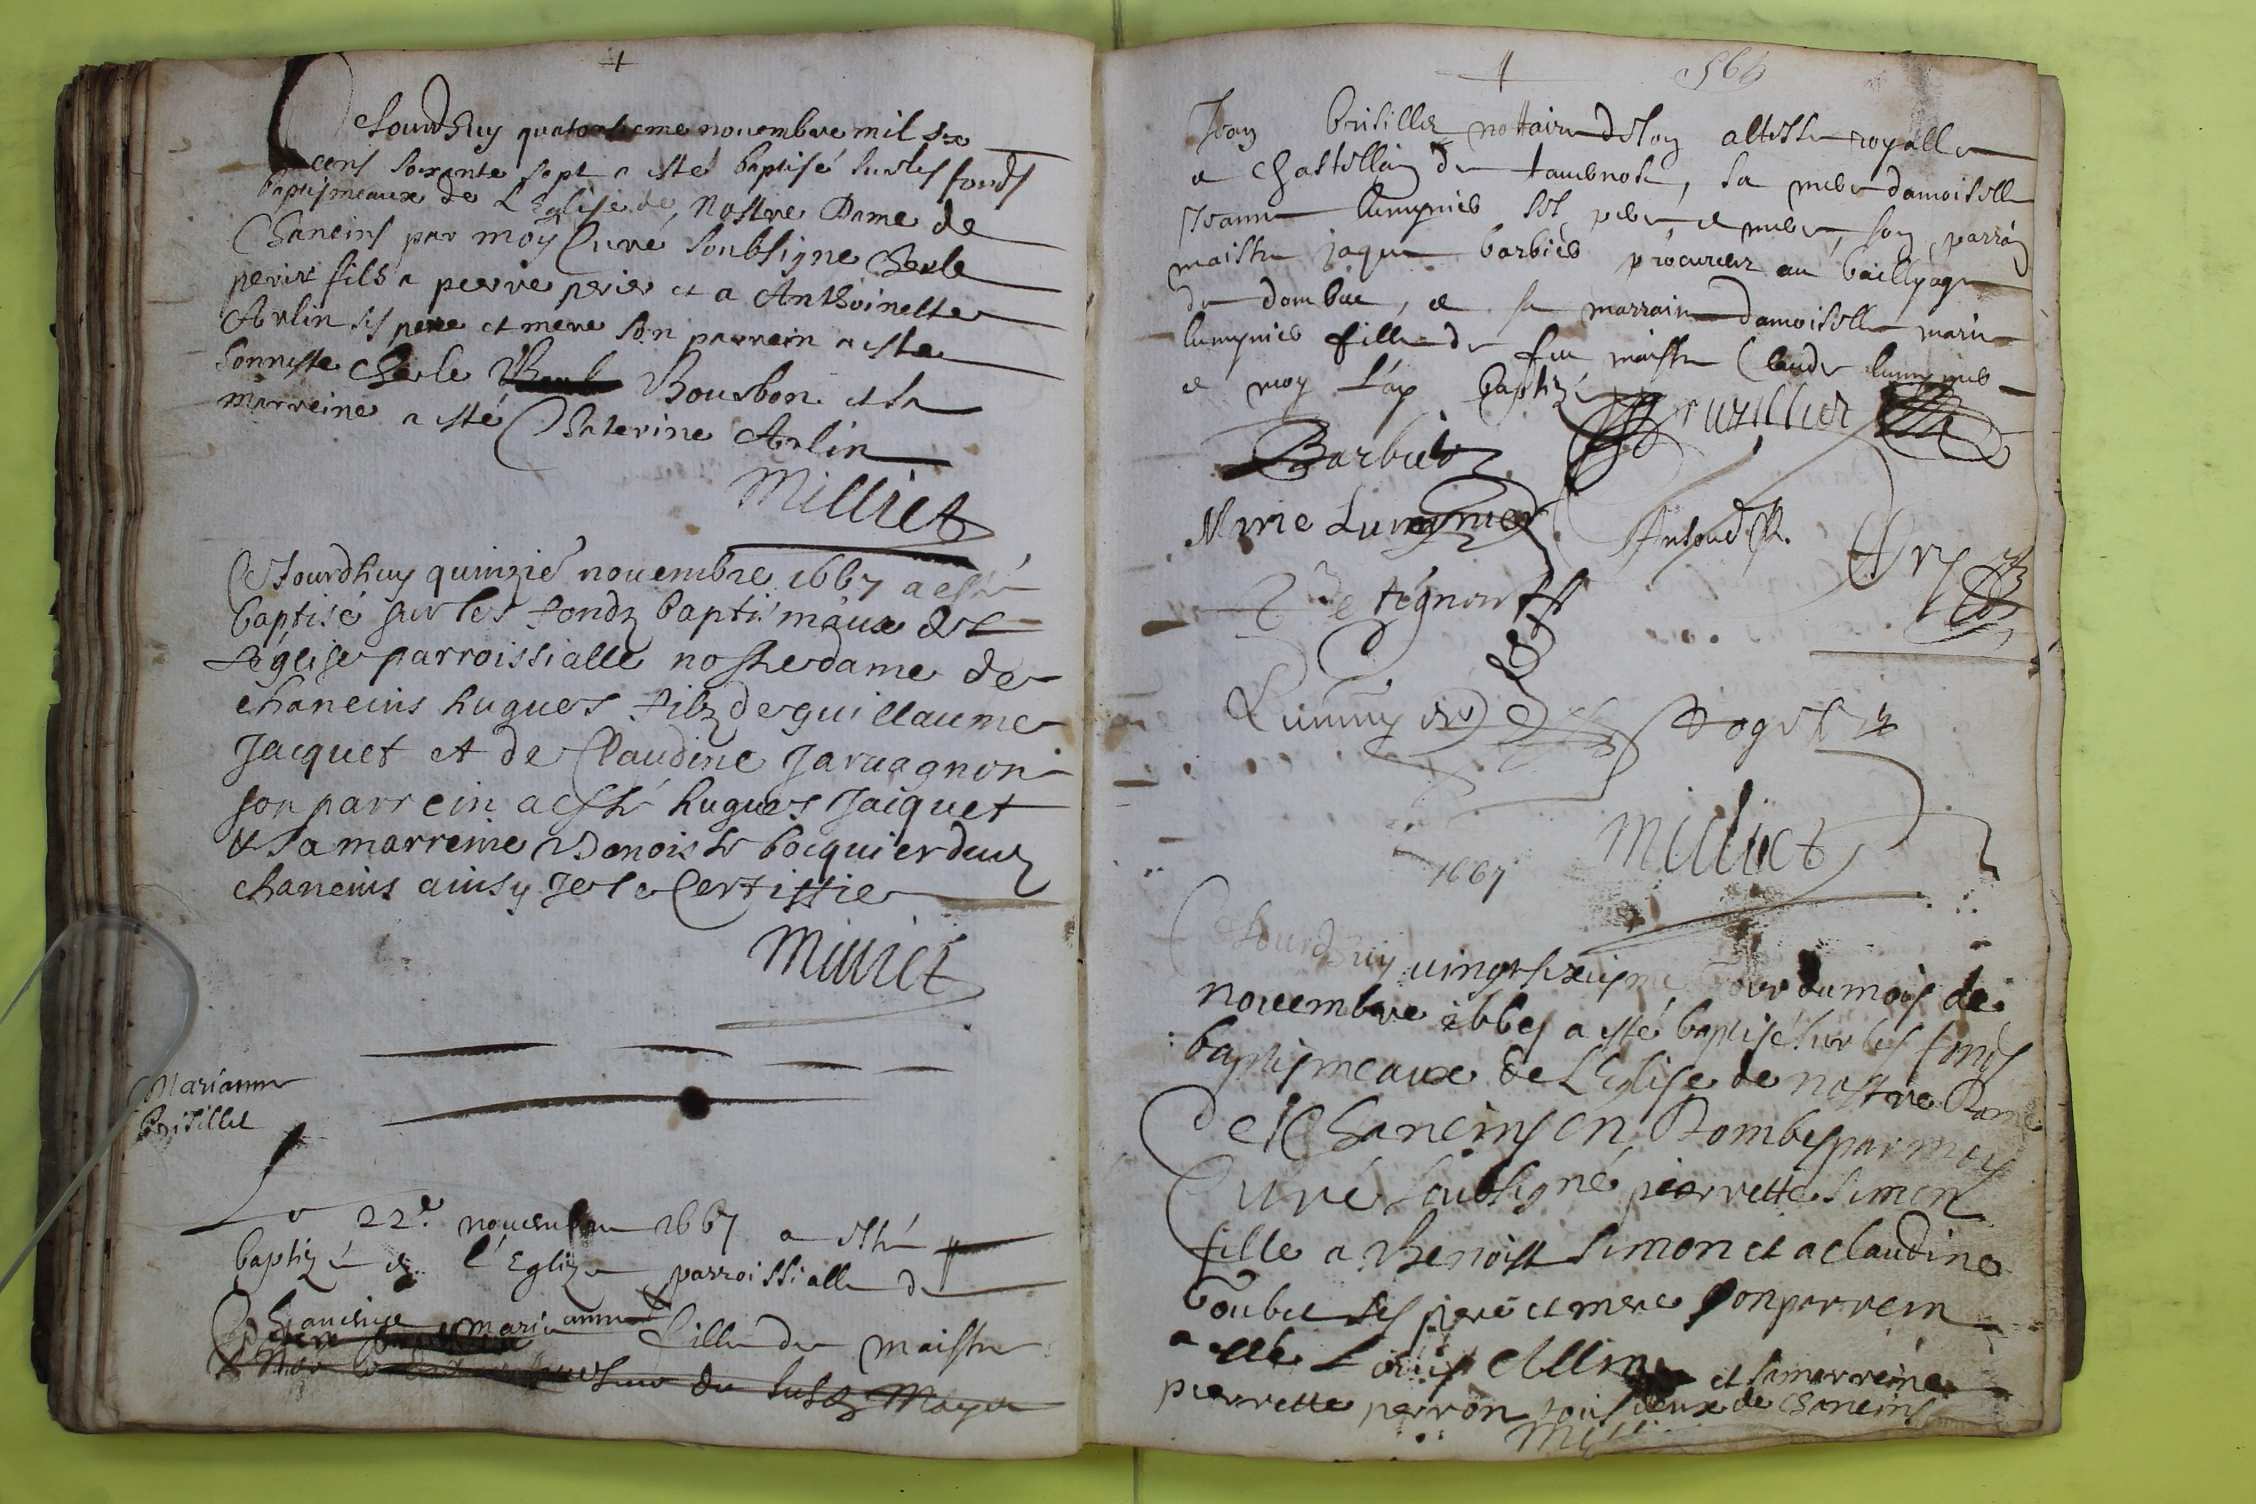 Cejourdhuy quatorsieme nouembre mil six
cens soixante sept a esté baptisé sur les fonds
baptismeaux de L'Eglise de Nostre Dame de
Chaneins par moy Curé soubsigne Cherle
perier fils a pierre perier et a Anthoinette
Arlin ses pere et mere son parrein a esté
honneste Cherle Bourbon et sa
marreine a esté Chaterine Arlin
Milliet
Cejourdhuy quinzié nouembre 1667 a esté
baptisé sur les fondz baptismaux de
l'eglise parroissialle nostre dame de
chaneins hugues filz de guillaume
Jacquet et de Claudine Jaruagnon
son parrein a esté hugues Jaiquet
& sa marreine Benoiste bocquier deux
chaneins ainsy Je le Certiffie
Milliet
Marianne
Brisillet
Le 22e nouembre 1667 a esté
baptizé en l'Eglize parroissialle de
Chaneins marie anne fille de maistre
Jean notaire de son altesse royalle
e Chastellain de, sa mere damoiselle
Jeanne Lumynier ses pere e mere, son parrain
maistre jaque barbier procureur au baillyage
de dombe, e sa marraine damoiselle marie
lumynier fille de feu maistre Claude lumynier
e moy l'ay baptizé
Barbier
Marie Lumynier
Milliet
1667
Cejourdhuy uingtsixiesme jour du mois de
nouembre 1667 a esté baptisé sur les fonds
baptismeaux de L'Eglise de nostre Dame
De Chaneins en Dombes par moy
Curé soubsigné pierrette simon
fille a Benoist simon et a claudine
ses pere et mere son parrein
a esté Louis et sa marreine
pierrette perron tous deux de chaneins